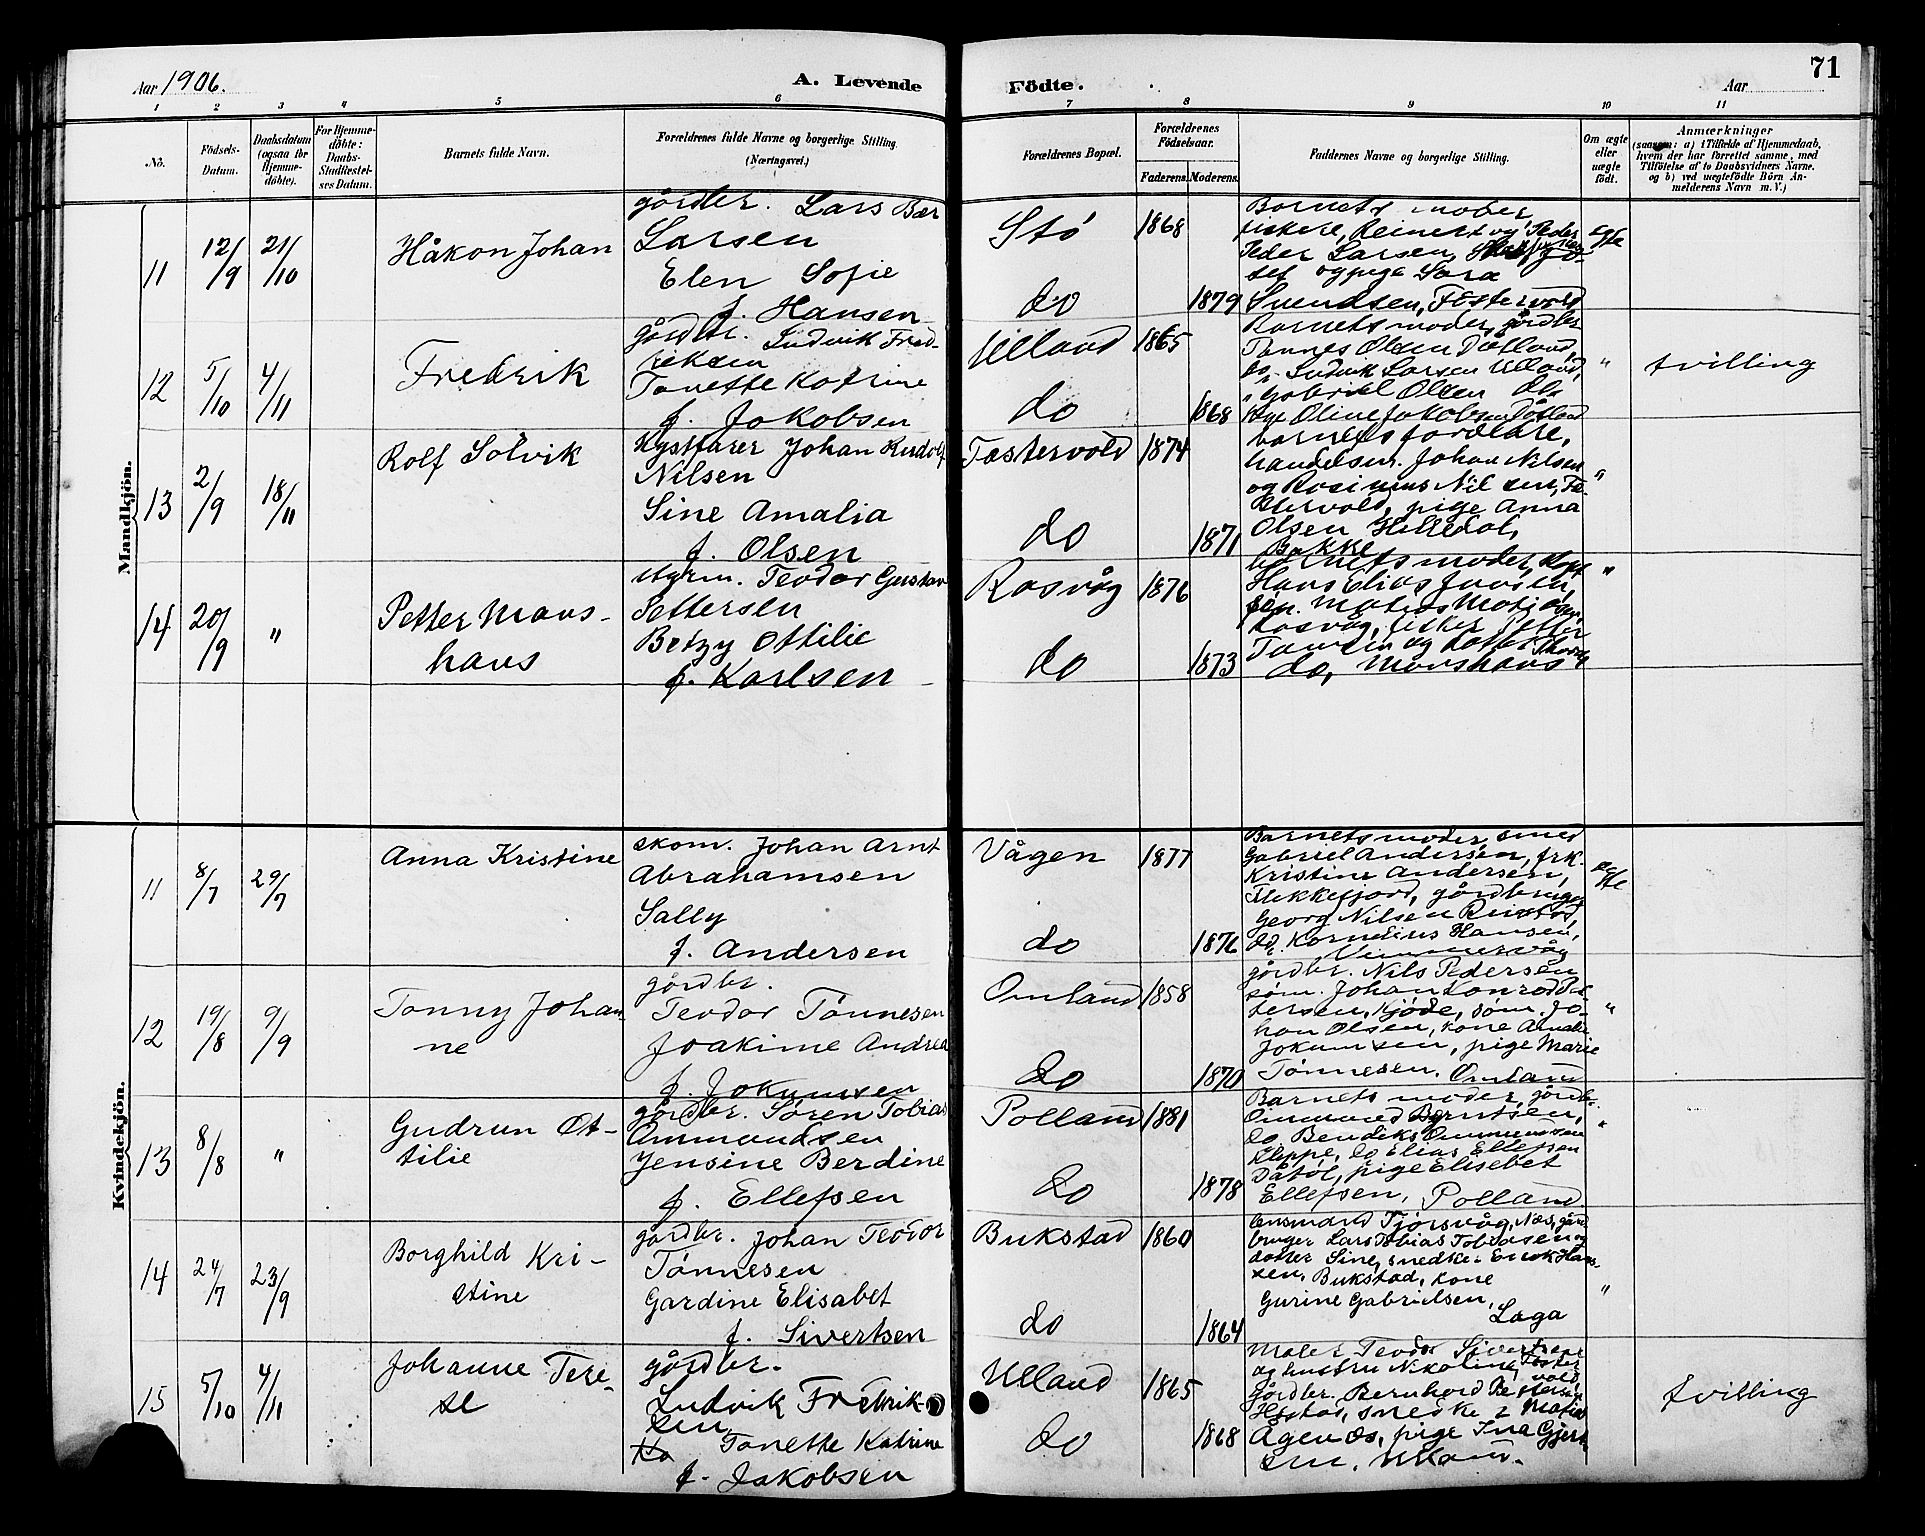 Aar 1906.
A. Levende
Födte.
Aar
71
1 2 3 4 5 6 7 8 9 10 11
No.
Födsels-Datum.
Daabsdatum (ogsaa for Hjemme-döbte).
For Hjemme-döbte: Daabs-Stadfæstel-ses Datum.
Barnets fulde Navn.
Forældrenes fulde Navne og borgerlige Stilling.
(Næringsvei.)
Forældrenes Bopæl.
Forældrenes Födselsaar.
Faderens.
Moderens.
Faddernes Navne og borgerlige Stilling.
Om ægte eller uægte födt.
Anmærkninger
(saasom: a) i Tilfælde af Hjemmedaab, hvem der har forrettet samme, med Tilföielse af to Daabsvidners Navne. og b) ved uægtefödte Börn An-melderens Navn m. V.)
Mandkjön.
11 12/9 21/10 Håkon Johan
gårdbr. Lars Bær
Larsen
Elen Sofie
f. Hansen
Stö 1868
do 1879
Barnets moder,
fiskere, Reinert og Peder
Peder Larsen,
sef og pige Sara
Svendsen, Fostervold
ægte
12 5/10 4/11 Fredrik
gårdbr. Ludvik Fred-
riksen
Tonette Katrine
f. Jakobsen
Ulland 1865
do 1868
Barnets moder, gårdbr
Tönnes Olsen Dåtland,
do Ludvik Larsen Ulland,
" Gabriel Olsen do
Pige Oline Jakobsen Dåtland
"
tvilling
13 2/9 18/11 Rolf Solvik
Kystfarer Johan Rudolf
Nilsen
Sine Amalia
f. Olsen
Fostervold 1874
do 1871
barnets forældre,
handelsm. Johan Nilsen
og Rosinius Nilsen, Fo-
stervold, pige Anna
Olsen Helledal,
Bakke
"
14 20/9 " Petter Mons-
hans
styrm. Teodor Gustav
Pettersen
Betzy Ottilie
f. Karlsen
Rasvåg 1876
do 1873
barnets moder, Kapt
Hans Elias Jansen,
Matias
Rasvåg, fisker Petter
do, Monshans
"
Kvindekjön.
11 8/7 29/7 Anna Kristine
skom. Johan Arnt
Abrahamsen
Sally
f. Andersen
Vågen 1877
do 1876
Barnets moder, smed
Gabriel Andersen, frk.
Kristine Andersen,
Flekkefjord, gårdbruger
Georg Nilsen
do. Kornelius Hansen,
ægte
12 19/8 9/9 Tonny Johan-
ne
gårdbr.
Teodor Tönnesen
Joakime Andrea
f. Jokumsen
Omland 1858
do 1870
gårdbr. Nils Pedersen
söm. Johan Konrad Pet-
tersen, Kjöde, söm. Jo-
han Olsen, kone Amalie
Jokumsen, pige Marie
Tönnesen. Omland
"
13 8/8 " Gudrun Ot-
tilie
gårdbr. Sören Tobias
Ommundsen
Jensine Berdine
f. Ellefsen
Polland 1881
do 1878
Barnets moder, gårdbr.
Ommund Berntsen,
do Bendiks Ommundsen
Kleppe, do Elias Ellefsen
Dåtöl, pige Elisebet
Ellefsen, Polland
"
14 24/7 23/9 Borghild Kri-
stine
gårdbr. Johan Teodor
Tönnesen
Gardine Elisabet
f. Sivertsen
Bukstad 1860
do 1864
lensmand Tjörsvåg, Næs, gård-
bruger Lars Tobias Tobiasen og
datter Sine, snedker Enok Han-
sen, Bukstad, kone
Gurine Gabrielsen,
Laga
"
15 5/10 4/11 Johanne Tere-
se
gårdbr.
Ludvik Fredrik-
sen
Tonette Katrine
f. Jakobsen
Ulland 1865
do 1868
Maler Teodor Sivertsen
og hustru Nikoline, Foster
vold,
gårdbr. Bernhard Pettersen,
Hestad, snedker Matias
Ågen do, pige Ina Gjert-
sen, Ulland.
tvilling